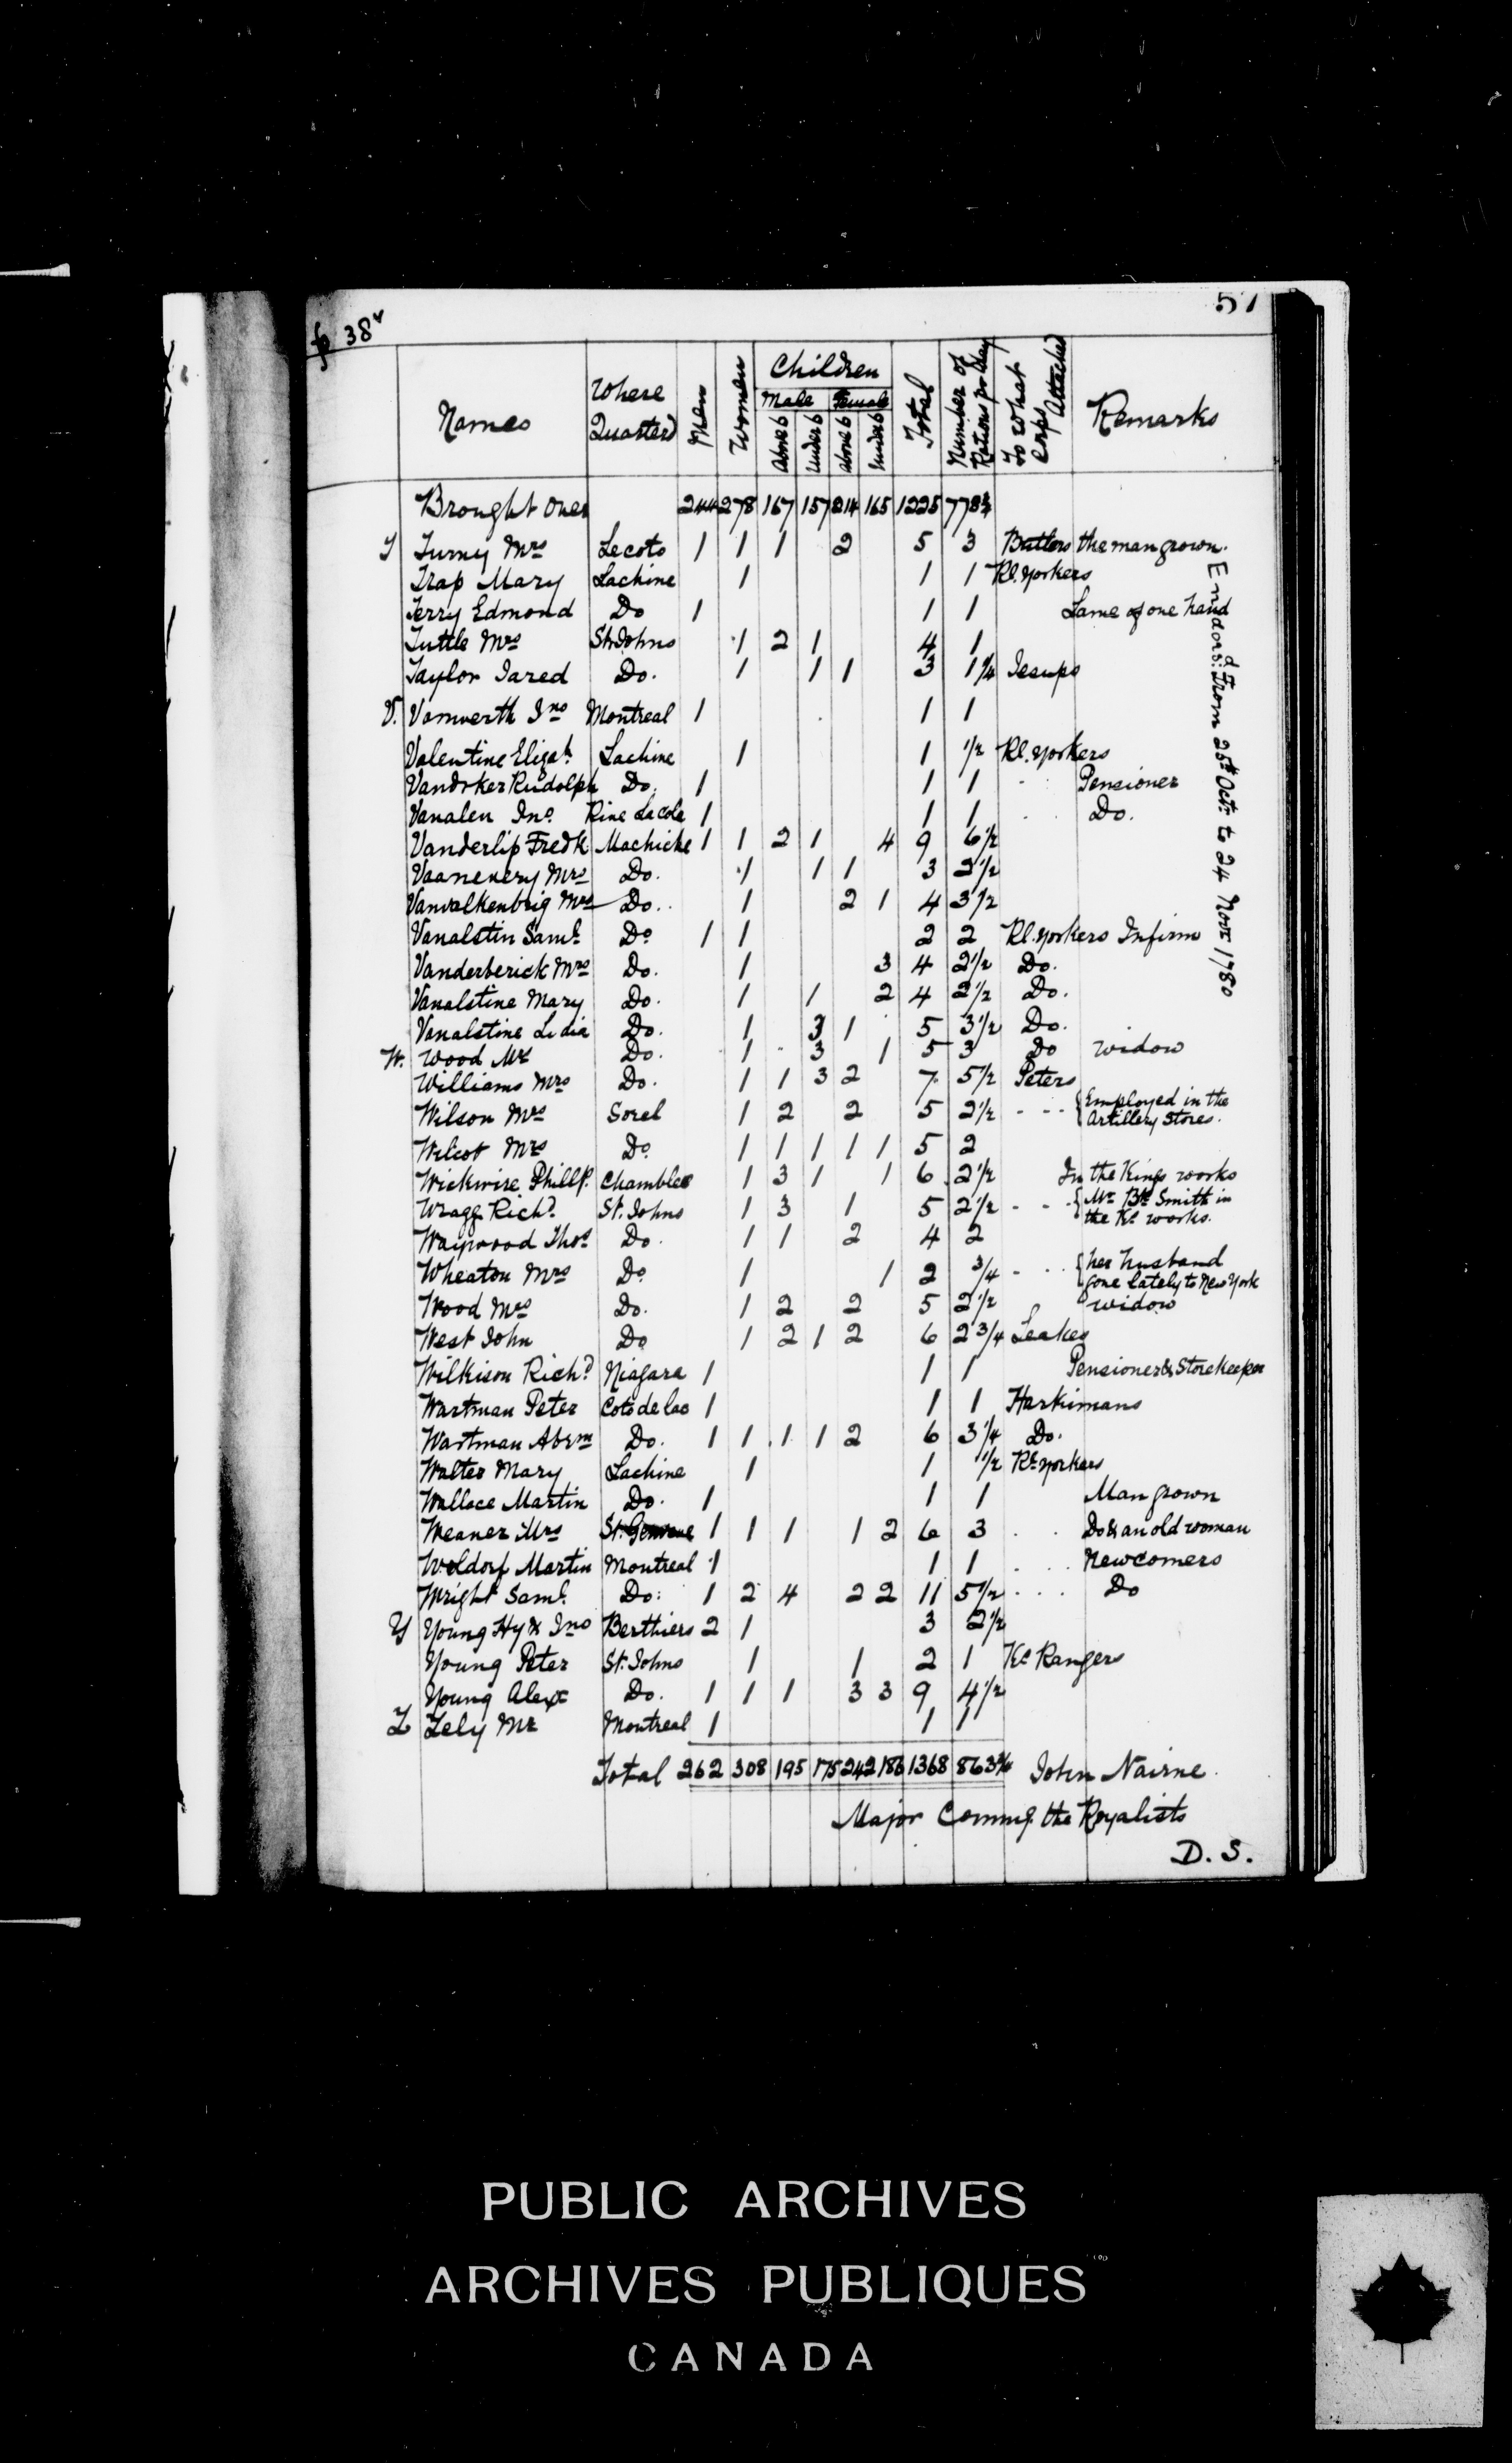 57
f 38v
Names Where Quartered Men Women Children Male Female Above 6 Under 6 above 6 Under 6 Total Number of Rations pr Day To What Corps Attached Remarks
Brought Over 244 278 167 157 214 165 1225 778¾
T Turny Mrs Lecoto 1 1 1 2 5 3 Butlers the man grown.
Trap Mary Lachine 1 1 1 Rl. Yorkers
Terry Edmond Do 1 1 1 Lame of one hand
Tuttle Mrs St. Johns 1 2 1 4 1
Taylor Jared Do. 1 1 1 3 1¼ Jesups
V. Vanwerth Jno Montreal 1 1 1
Valentine Elizah. Lachine 1 1 ½ Rl. Yorkers
Vandoker Rudolph Do. 1 1 1 Pensioner
Vanalen Jno. Rine La Cole 1 1 1 Do.
Vanderlip Fredk Machiche 1 1 2 1 4 9 6½
Vaanenery Mrs Do. 1 1 1 3 2½
Vanvalkenbrig Mrs Do. 1 2 1 4 3½
Vanalstin Saml. Do 1 1 2 2 Rl. Yorkers Infirm
Vanderberick Mrs Do. 1 3 4 2½ Do.
Vanalstine Mary Do. 1 1 2 4 2½ Do.
Vanalstine Lidia Do. 1 3 1 5 3½ Do.
W. Wood Mrs Do. 1 3 1 5 3 Do widow
Williams Mrs Do. 1 1 3 2 7. 5½ Peters
Wilson Mrs Sorel 1 2 2 5 2½ - - - { Employed in the
Artillery Stores.
Wilcot Mrs Do. 1 1 1 1 1 5 2
Wickwire Phillp. Chamblee 1 3 1 1 6 2½ In the Kings works
Wragg Richd. St. Johns 1 3 1 5 2½ - - - { Mr. Smith in
the Kl. works.
Waywood Thos Do. 1 1 2 4 2
Wheaton Mrs Do. 1 1 2 ¾ - - - { her husband
gone lately to New York
Wood Mrs Do. 1 2 2 5 2½ widow
West John Do 1 2 1 2 6 2¾ Leakes
Wilkison Richd Niagara 1 1 1 Pensioner & Storekeeper
Wartman Peter Coto de Lac 1 1 1 Harkimans
Wartman Abrm Do. 1 1 1 1 2 6 3¼ Do.
Walter Mary Lachine 1 1 ½ Rl. Yorkers
Wallace Martin Do. 1 1 1 Man grown
Weaner Mrs St. 1 1 1 1 2 6 3 . . Do & an old woman
Weldorf Martin Montreal 1 1 1 . . . Newcomers
Wright Saml. Do: 1 2 4 2 2 11 5½ . . . Do
Y Young Hy & Jno Berthiers 2 1 3 2½
Young Peter St. Johns 1 1 2 1 Ks Rangers
Young Alexr Do. 1 1 1 3 3 9 4½
Z Zely Mr Montreal 1 1 1
Total 262 308 195 175 242 186 1368 863¾ John Nairne.
Major Commg. the Royalists
D. S.
Endorsd: From 25th Octr to 24 Novr 1780
PUBLIC ARCHIVES
ARCHIVES PUBLIQUES
CANADA